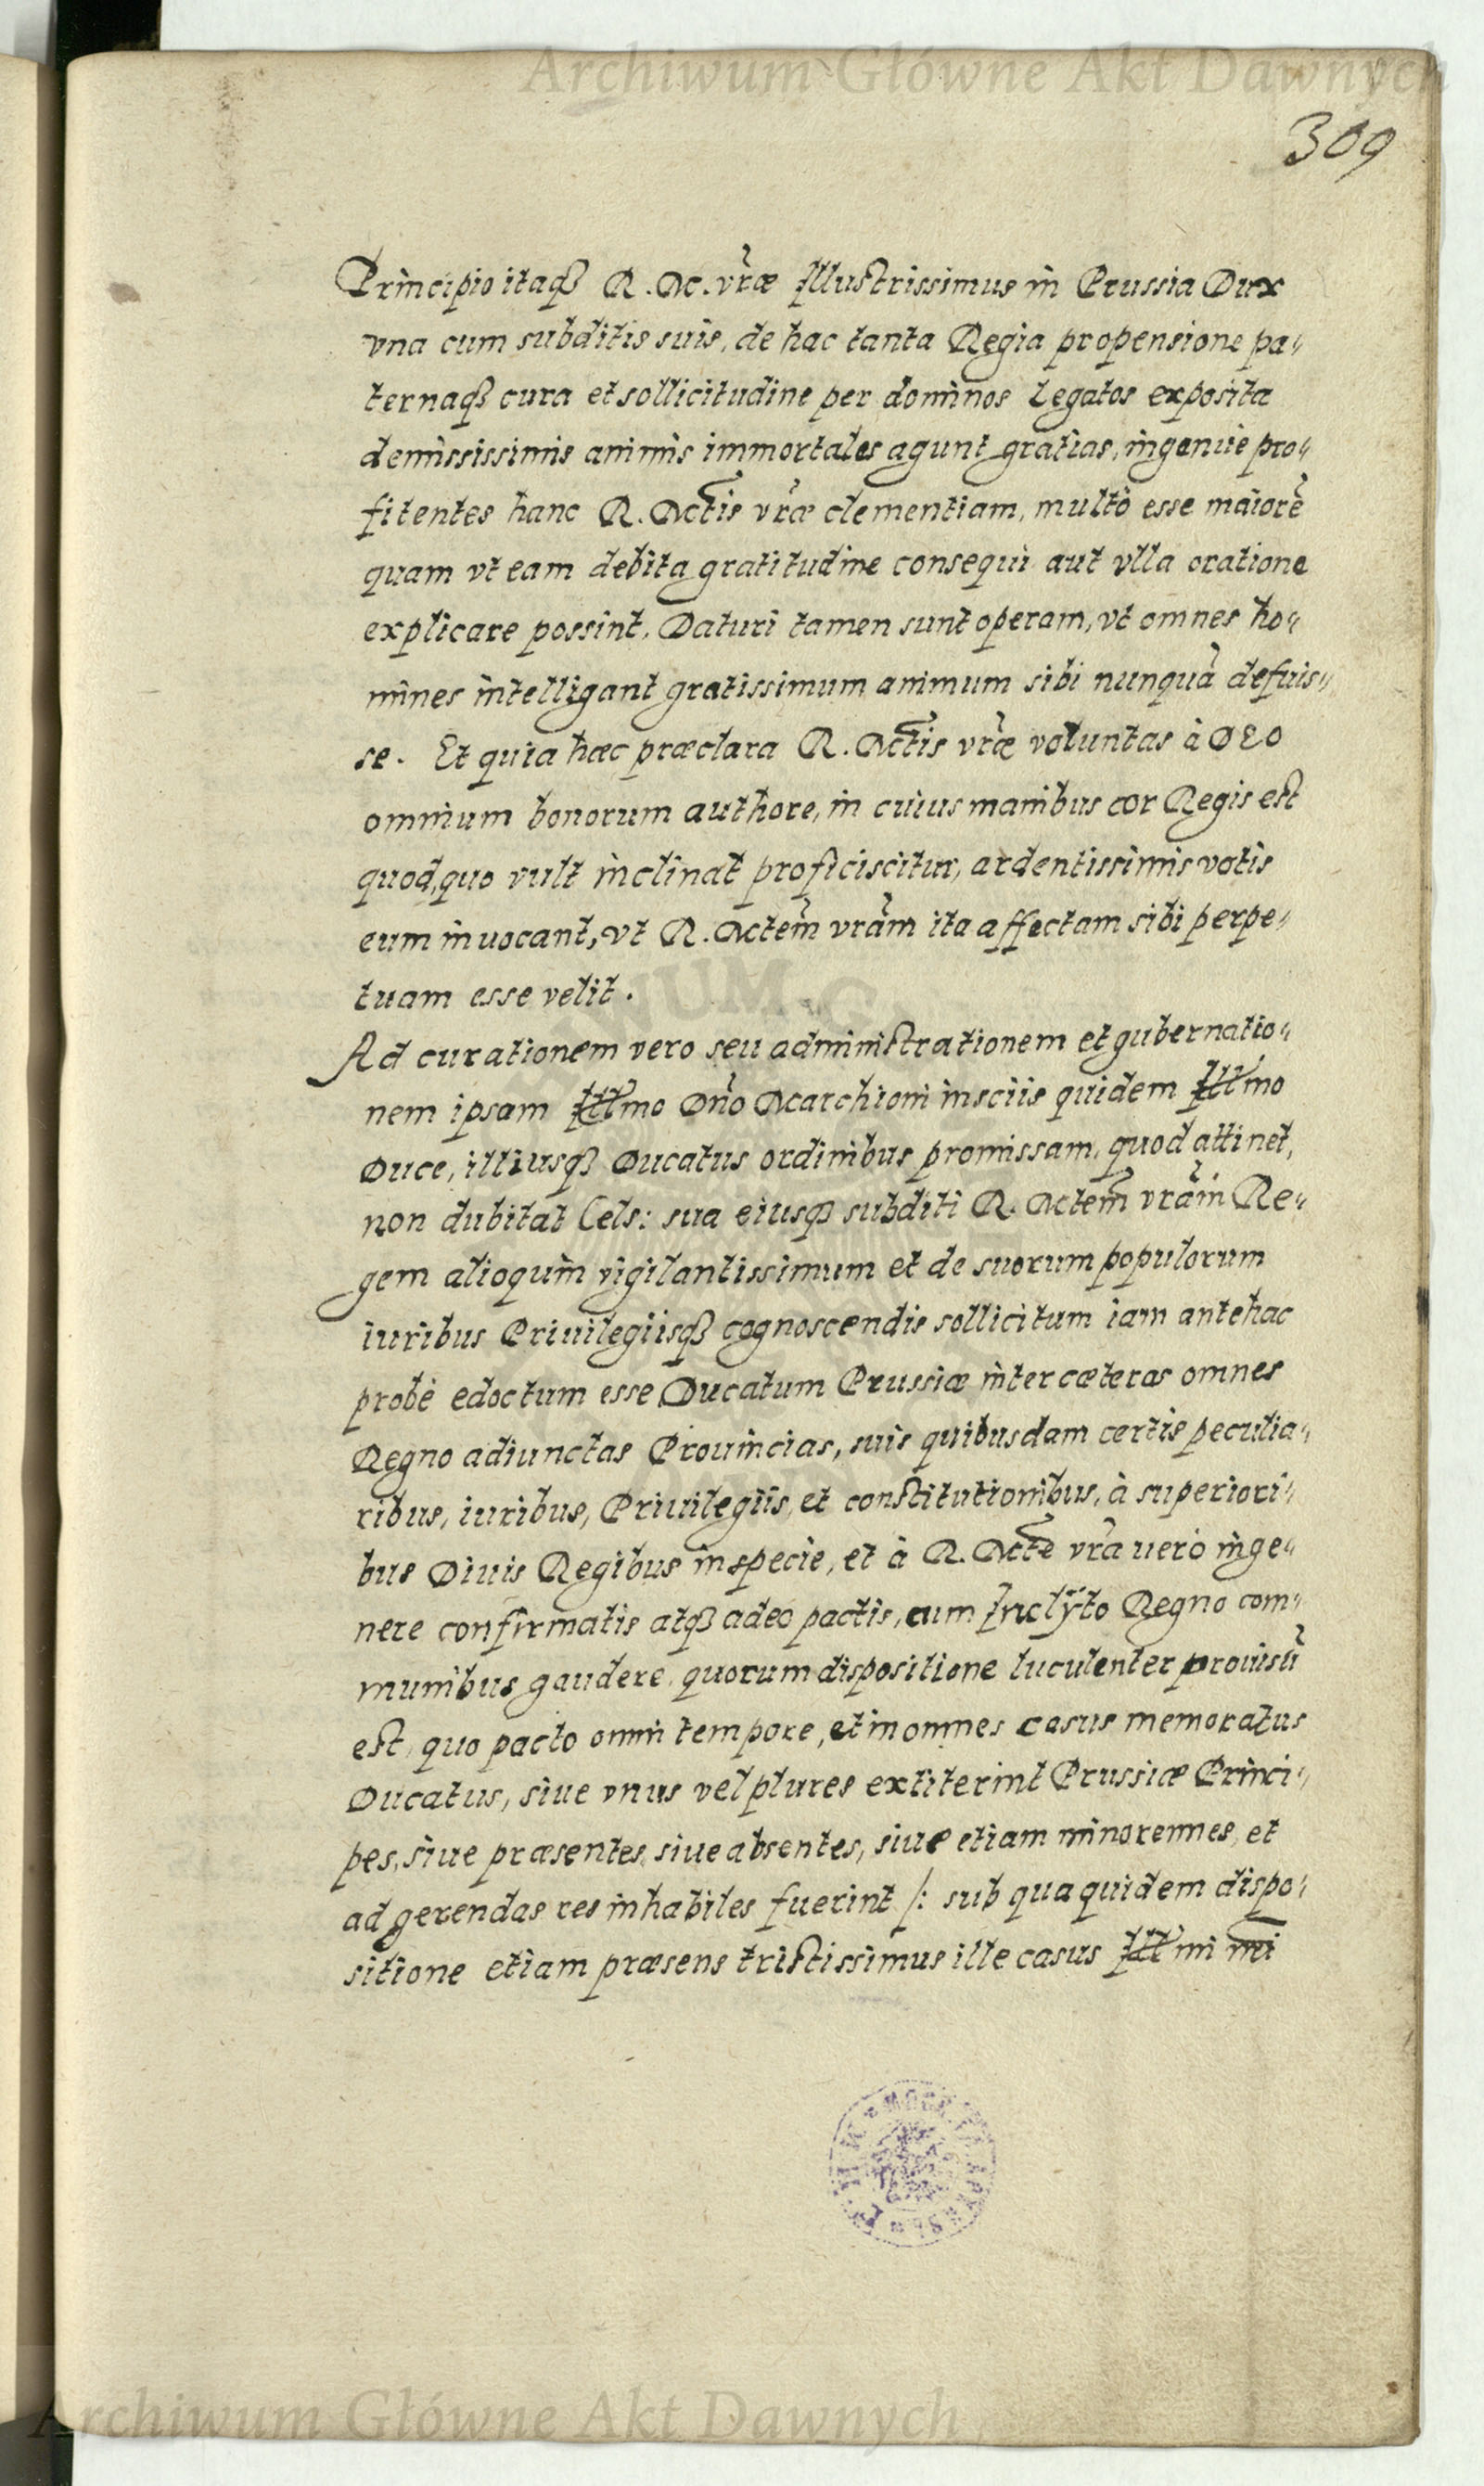 Archiwum Główne Akt Dawnych
309
Principio itaq3 R. M. vr̃æ Illustrissimus in Prussia Dux
vna cum subditis suis, de hac tanta Regia propensione pa„
ternaq3 cura et sollicitudine per dominos Legatos exposita
demississimis animis immortales agunt gratias, ingenùe pro„
fitentes hanc R. Mtis vr̃æ clementiam, multò esse maiorẽ
quam vt eam debita gratitudine consequi aut vlla oratione
explicare possint. Daturi tamen sunt operam, vt omnes ho„
mines intelligant gratissimum animum sibi nunquã defuis„
se. Et quia hæc præclara R. Mtis vr̃æ voluntas à DEO
omnium bonorum authore, in cuius manibus cor Regis est
quod, quo vult inclinat proficiscitur, ardentissimis votis
eum inuocant, vt R. Mtem vr̃am ita affectam sibi perpe„
tuam esse velit.
Ad curationem vero seu administrationem et gubernatio„
nem ipsam Illmo Dño Marchioni insciis quidem Illmo
Duce, illiusq3 Ducatus ordinibus promissam, quod attinet,
non dubitat Cels: sua eiusq3 subditi R. Mtem vr̃am Re„
gem alioquin vigilantissimum et de suorum populorum
iuribus Priuilegiisq3 cognoscendis sollicitum iam antehac
probè edoctum esse Ducatum Prussiæ inter cæteras omnes
Regno adiunctas Prouincias, suis quibusdam certis peculia„
ribus, iuribus, Priuilegiis, et constitutionibus, à superiori„
bus Diuis Regibus in specie, et à R. Mte vr̃a uerò in ge„
nere confirmatis atq3 adeo pactis, cum Inclÿto Regno com„
munibus gaudere, quorum dispositione luculenter prouisũ
est, quo pacto omni tempore, et in omnes casus memoratus
Ducatus, siue vnus vel plures extiterint Prussiæ Princi„
pes, siue præsentes, siue absentes, siue etiam minorennes, et
ad gerendas res inhabiles fuerint /: sub qua quidem dispo„
sitione etiam præsens tristissimus ille casus Illmi nri
Archiwum Główne Akt Dawnych